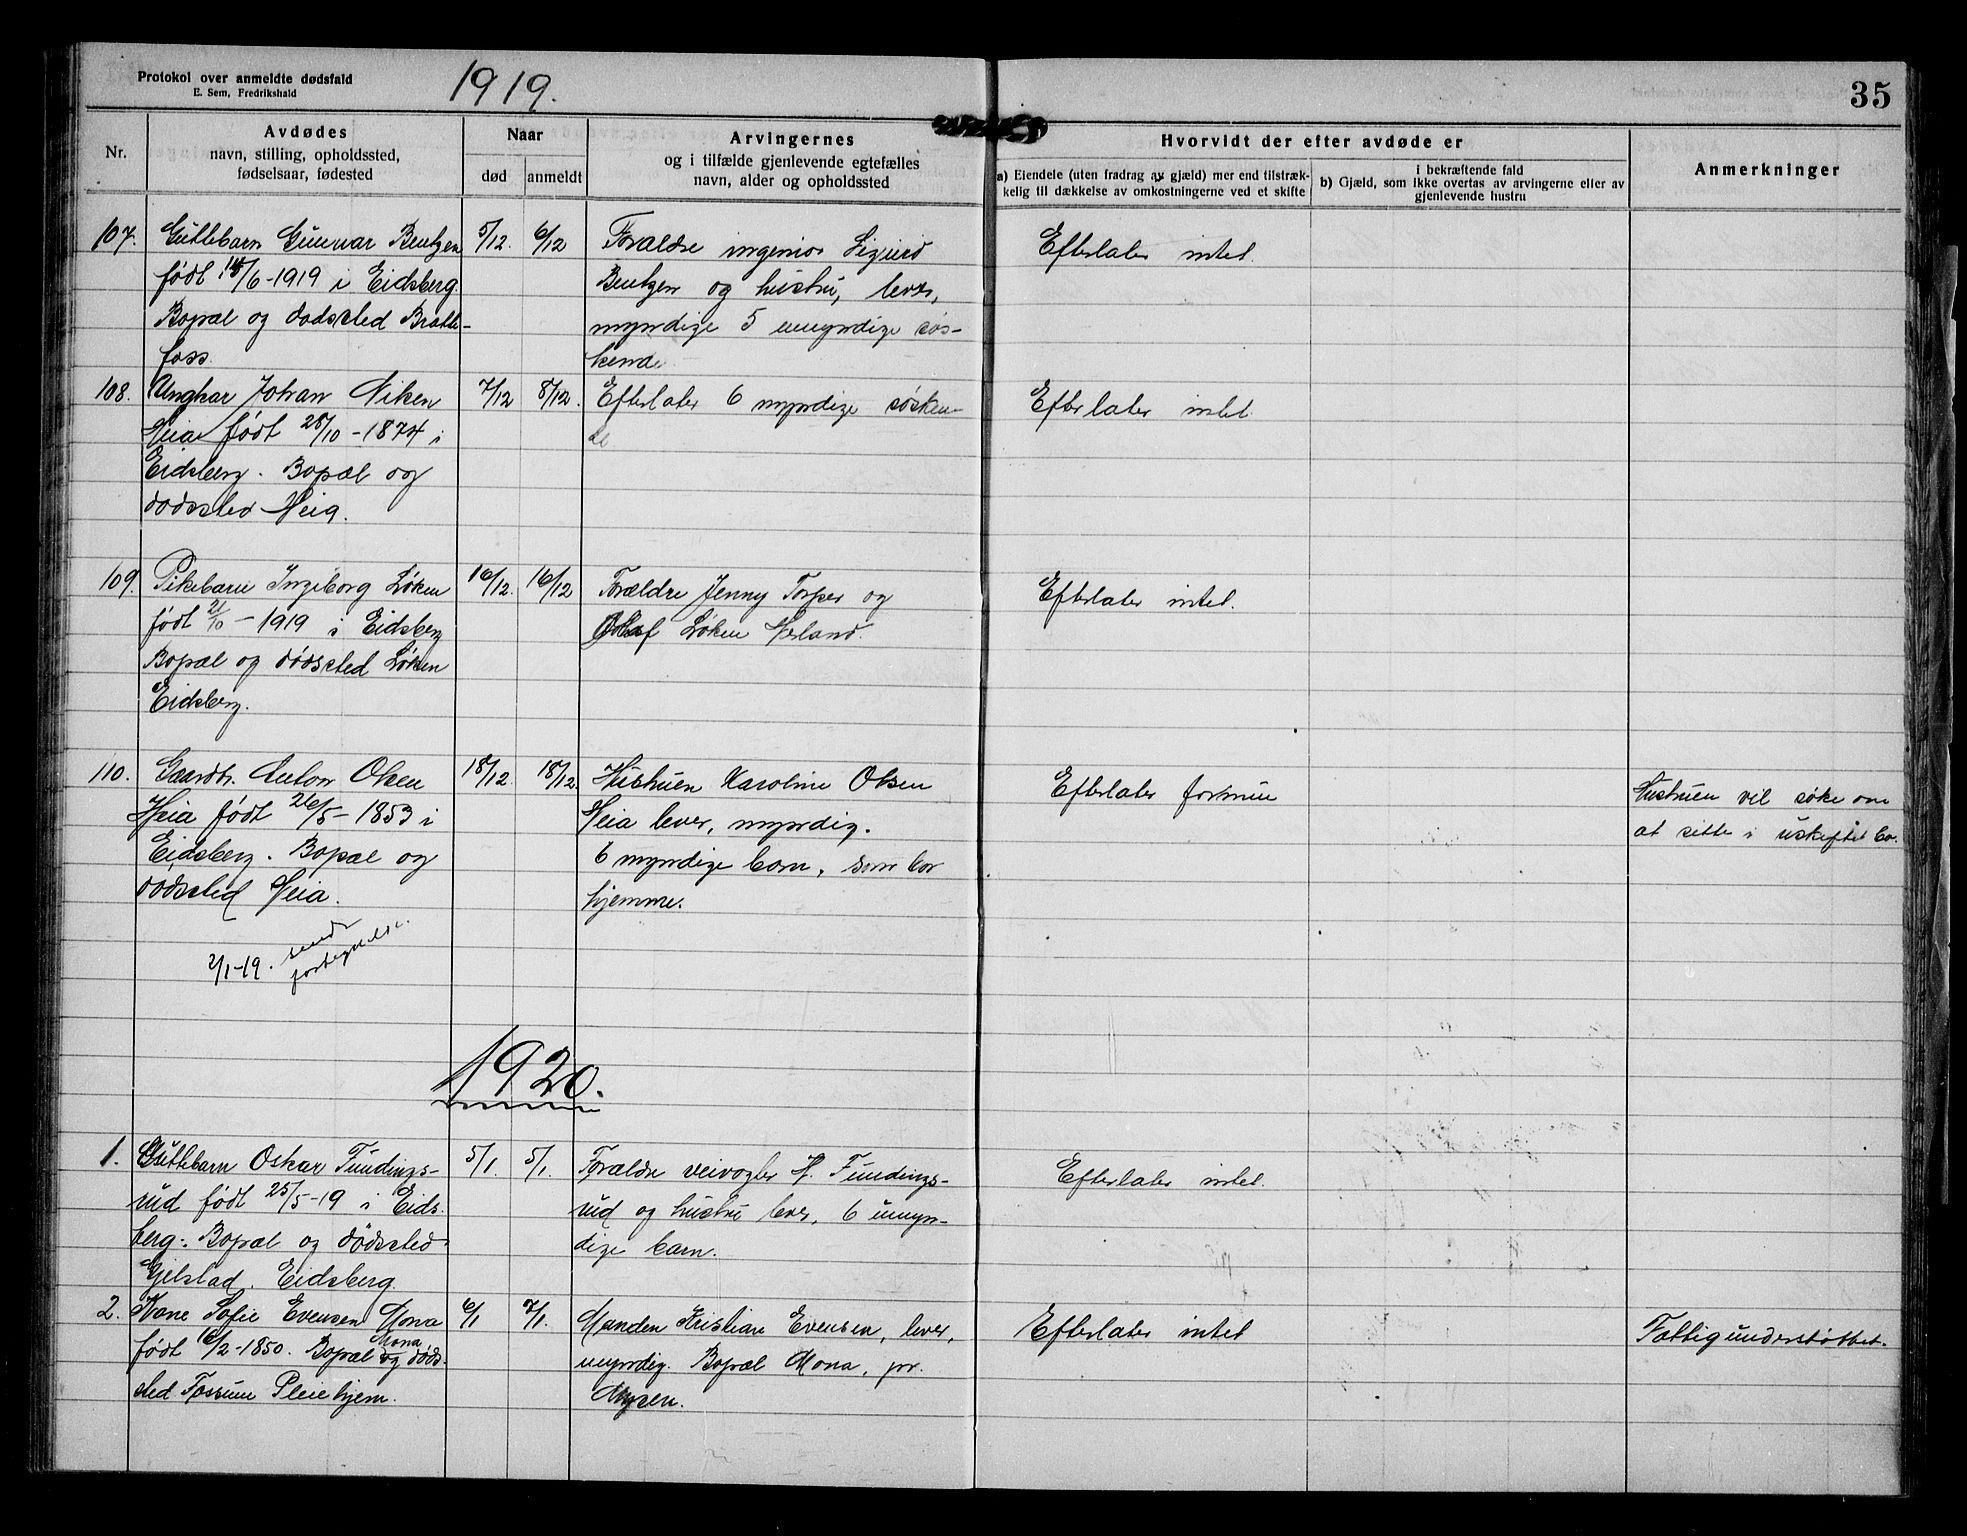 Protokol over anmeldte dødsfald
E. Sem, Fredrikshald
1919.
35
Nr.
Avdødes
navn, stilling, opholdssted,
fødselsaar, fødested
Naar
død
anmeldt
Arvingernes
og i tilfælde gjenlevende egtefælles
navn, alder og opholdssted
Hvorvidt der efter avdøde er
a) Eiendele (uten fradrag av gjæld) mer end tilstræk-
kelig til dækkelse av omkostningerne ved et skifte
i bekræftende fald
b) Gjæld, som ikke overtas av arvingerne eller av
gjenlevende hustru
Anmerkninger
107.
Guttebarn Gunnar Bentzen
født 14/6-1919 i Eidsberg
Bopæl og dødssted Bratte-
foss.
5/12.
6/12
Forældre ingeniør Sigurd
Bentzen og hustru, lever,
myndige 5 umyndige søs-
kende
Efterlater intet.
108.
Ungkar Johan Niken
Heia født 28/10-1874 i
Eidsberg. Bopæl og
dødssted Heia.
7/12
8/12.
Efterlater 6 myndige søsken-
de
Efterlater intet
109.
Pikebarn Ingeborg Løken
født 21/10-1919 i Eidsberg
Bopæl og dødssted Løken
Eidsberg.
16/12.
16/12
Forældre Jenny Torper og
Olaf Løken Herland.
Efterlater intet.
110.
Gaardbr. Anton Olsen
Heia født 26/5-1853 i
Eidsberg. Bopæl og
dødssted Heia.
18/12.
18/12.
Hustruen Karoline Olsen
Heia lever, myndig.
6 myndige barn, som bor
hjemme.
Efterlater formue
Hustruen vil søke om
at sitte i uskiftet bo.
2/1-19. sendt
fortegnelse.
1920.
1.
Guttebarn Oskar Fundings-
rud født 25/5-19 i Eids-
berg. Bopæl og dødssted
Gjelstad. Eidsberg.
5/1.
5/1.
Forældre veivogter H. Fundings-
rud og hustru lever, 6 umyn-
dige barn.
Efterlater intet.
2.
Kone Sofie Evensen Mona
født 16/2-1850. Bopæl Mona og døds-
sted Fossum Pleiehjem.
6/1
7/1.
Manden Kristian Evensen, lever,
myndig. Bopæl Mona, pr.
Mysen.
Efterlater intet
Fattigunderstøttet.